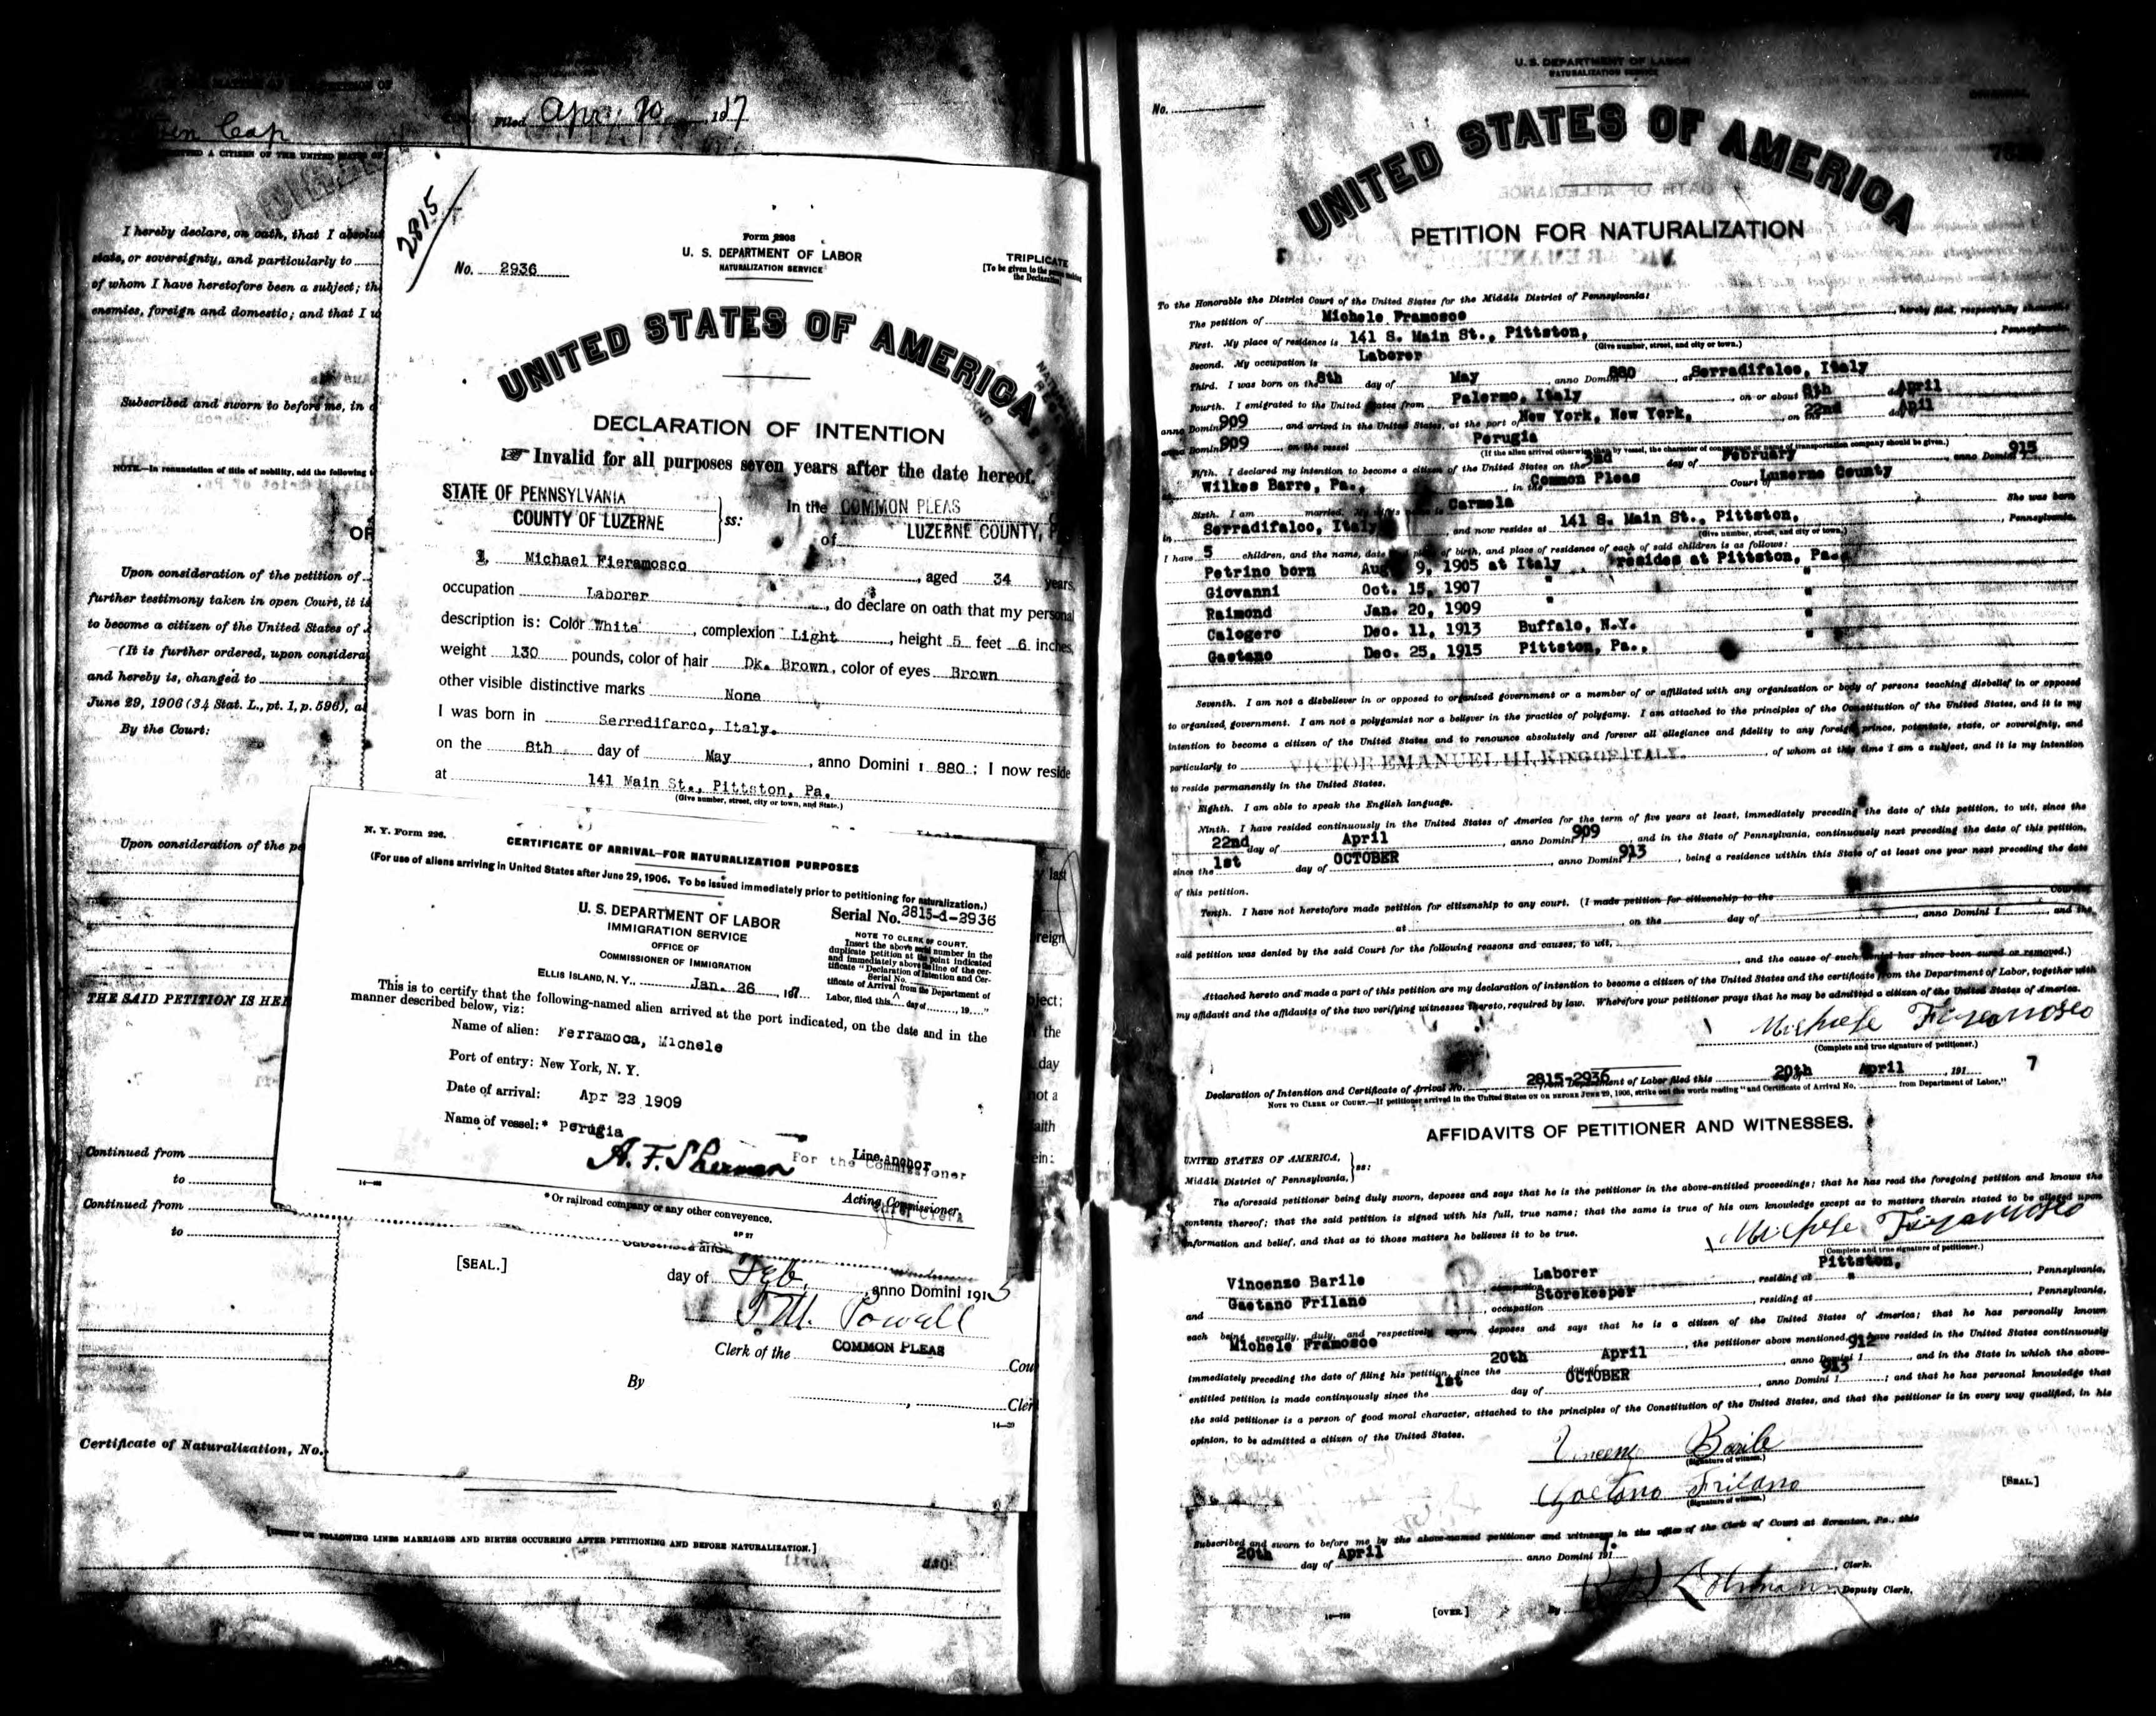 Filed Apr. 20, 1917
A CITIZEN OF THE UNITED STATES OF
I hereby declare, on oath, that I absolut
state, or sovereignty, and particularly to
of whom I have heretofore been a subject; th
enemies, foreign and domestic; and that I w
Subscribed and sworn to before me, in
NOTE.—In renunciation of title of nobility, add the following
OR
Upon consideration of the petition of
further testimony taken in open Court, it is
to become a citizen of the United States of
(It is further ordered, upon considera
and hereby is, changed to
June 29, 1906 (34 Stat. L., pt. 1, p. 596), a
By the Court:
Upon consideration of the pe
THE SAID PETITION IS HER
Continued from
to
Continued from
to
Certificate of Naturalization, No.
[INSERT ON FOLLOWING LINES MARRIAGES AND BIRTHS OCCURRING AFTER PETITIONING AND BEFORE NATURALIZATION.]
2815
Form 2203
U. S. DEPARTMENT OF LABOR
NATURALIZATION SERVICE
No. 2936
TRIPLICATE
[To be given to the person making the Declaration]
UNITED STATES OF AMERICA
DECLARATION OF INTENTION
☞ Invalid for all purposes seven years after the date hereof.
STATE OF PENNSYLVANIA
COUNTY OF LUZERNE
ss:
In the COMMON PLEAS
of LUZERNE COUNTY, P
I, Michael Fieramosco, aged 34 years,
occupation Laborer, do declare on oath that my personal
description is: Color White, complexion Light, height 5 feet 6 inches,
weight 130 pounds, color of hair Dk. Brown, color of eyes Brown
other visible distinctive marks None
I was born in Serredifarco, Italy.
on the 8th day of May, anno Domini 1 880; I now reside
at 141 Main St., Pittston, Pa.
(Give number, street, city or town, and State.)
N. Y. Form 296.
CERTIFICATE OF ARRIVAL—FOR NATURALIZATION PURPOSES
(For use of aliens arriving in United States after June 29, 1906. To be issued immediately prior to petitioning for naturalization.)
U. S. DEPARTMENT OF LABOR
IMMIGRATION SERVICE
OFFICE OF
COMMISSIONER OF IMMIGRATION
Serial No. 2815-d-2936
NOTE TO CLERK OF COURT.
Insert the above serial number in the
duplicate petition at the point indicated
and immediately above the line of the cer-
tificate "Declaration of Intention and Cer-
tificate of Arrival from the Department of
Serial No.
Labor, filed this day of , 19 "
ELLIS ISLAND, N. Y., Jan. 26, 1917
This is to certify that the following-named alien arrived at the port indicated, on the date and in the
manner described below, viz:
Name of alien: Ferramoca, Michele
Port of entry: New York, N. Y.
Date of arrival: Apr 23 1909
Name of vessel:* Perugia
Line Anchor
A. F. Sherman
For the Commissioner
Acting Commissioner.
Chief Clerk
* Or railroad company or any other conveyence.
[SEAL.]
day of Feb, anno Domini 1915
Clerk of the COMMON PLEAS Cou
By , Cler
14—29
U. S. DEPARTMENT OF LABOR
NATURALIZATION SERVICE
No.
UNITED STATES OF AMERICA
PETITION FOR NATURALIZATION
To the Honorable the District Court of the United States for the Middle District of Pennsylvania:
The petition of Michele Framosco, hereby filed, respectfully showeth:
First. My place of residence is 141 S. Main St., Pittston, Pennsylvania.
(Give number, street, and city or town.)
Second. My occupation is Laborer
Third. I was born on the 8th day of May anno Domini 1880, at Serradifalco, Italy
Fourth. I emigrated to the United States from Palermo, Italy, on or about 8th day April
anno Domini 909, and arrived in the United States, at the port of New York, New York, on the 22nd day April
anno Domini 909, on the vessel Perugia
(If the alien arrived otherwise than by vessel, the character of conveyance or name of transportation company should be given.)
Fifth. I declared my intention to become a citizen of the United States on the 2nd day of February, anno Domini 1 915
Wilkes Barre, Pa., in the Common Pleas Court of Luzerne County
Sixth. I am married. My wife's name is Carmela She was born
in Serradifalco, Italy and now resides at 141 S. Main St., Pittston, Pennsylvania.
(Give number, street, and city or town.)
I have 5 children, and the name, date and place of birth, and place of residence of each of said children is as follows:
Petrino born Aug 9, 1905 at Italy resides at Pittston, Pa.,
Giovanni Oct. 15, 1907 " "
Raimond Jan. 20, 1909 " "
Calogero Dec. 11, 1913 Buffalo, N.Y. "
Gaetano Dec. 25, 1915 Pittston, Pa., "
Seventh. I am not a disbeliever in or opposed to organized government or a member of or affiliated with any organization or body of persons teaching disbelief in or opposed
to organized government. I am not a polygamist nor a believer in the practice of polygamy. I am attached to the principles of the Constitution of the United States, and it is my
intention to become a citizen of the United States and to renounce absolutely and forever all allegiance and fidelity to any foreign prince, potentate, state, or sovereignty, and
particularly to VICTOR EMANUEL III, KING OF ITALY, of whom at this time I am a subject, and it is my intention
to reside permanently in the United States.
Eighth. I am able to speak the English language.
Ninth. I have resided continuously in the United States of America for the term of five years at least, immediately preceding the date of this petition, to wit, since the
22nd day of April, anno Domini 1 909, and in the State of Pennsylvania, continuously next preceding the date of this petition,
since the 1st day of OCTOBER, anno Domini 1 913, being a residence within this State of at least one year next preceding the date
of this petition.
Tenth. I have not heretofore made petition for citizenship to any court. (I made petition for citizenship to the Court of
at , on the day of , anno Domini 1 , and the
said petition was denied by the said Court for the following reasons and causes, to wit,
, and the cause of such denial has since been cured or removed.)
Attached hereto and made a part of this petition are my declaration of intention to become a citizen of the United States and the certificate from the Department of Labor, together with
my affidavit and the affidavits of the two verifying witnesses thereto, required by law. Wherefore your petitioner prays that he may be admitted a citizen of the United States of America.
Michele Fieramosco
(Complete and true signature of petitioner.)
Declaration of Intention and Certificate of Arrival No. 2815-2936 from Department of Labor filed this 20th April, 191 7
NOTE TO CLERK OF COURT.—If petitioner arrived in the United States ON OR BEFORE JUNE 29, 1906, strike out the words reading "and Certificate of Arrival No. from Department of Labor."
AFFIDAVITS OF PETITIONER AND WITNESSES.
UNITED STATES OF AMERICA,
Middle District of Pennsylvania,
ss:
The aforesaid petitioner being duly sworn, deposes and says that he is the petitioner in the above-entitled proceedings; that he has read the foregoing petition and knows the
contents thereof; that the said petition is signed with his full, true name; that the same is true of his own knowledge except as to matters therein stated to be alleged upon
information and belief, and that as to those matters he believes it to be true.
Michele Fieramosco
(Complete and true signature of petitioner.)
Vincenzo Barile, occupation Laborer, residing at Pittston, Pennsylvania,
and Gaetano Frilano, occupation Storekeeper, residing at ", Pennsylvania,
each being severally, duly, and respectively sworn, deposes and says that he is a citizen of the United States of America; that he has personally known
Michele Framosco, the petitioner above mentioned, to have resided in the United States continuously
immediately preceding the date of filing his petition, since the 20th day of April, anno Domini 1 912, and in the State in which the above-
entitled petition is made continuously since the 1st day of OCTOBER, anno Domini 1 913; and that he has personal knowledge that
the said petitioner is a person of good moral character, attached to the principles of the Constitution of the United States, and that the petitioner is in every way qualified, in his
opinion, to be admitted a citizen of the United States.
Vincenz Barile
(Signature of witness.)
Gaetano Frilano
(Signature of witness.)
[SEAL.]
Subscribed and sworn to before me by the above-named petitioner and witnesses in the office of the Clerk of Court at Scranton, Pa., this
20th day of April anno Domini 191 7.
, Clerk.
By , Deputy Clerk.
[OVER.]